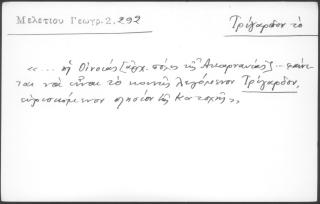 Μελετίου Γεωγρ. 2, 292
Τρίγαρδον τό
«... ἡ Οἰνειάς [ἀρχ. πόλις τῆς Ἀκαρνανίας] ... φαίνε-
ται νὰ εἶναι τὸ κοινῶς λεγόμενον Τρίγαρδον,
εὑρισκόμενον πλησίον τῆς Κατοχῆς»